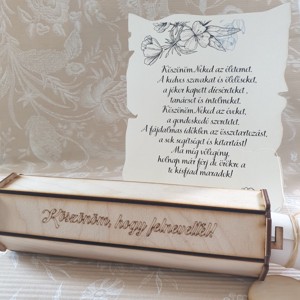 Köszönöm Neked az életemet.
A kedves szavakat és öleléseket,
a jókor kapott dicséreteket,
tanácsot és intelmeket.
Köszönöm Neked az éveket,
a gondoskodó szeretetet.
A fájdalmas időkben az összetartozást,
a sok segítséget és kitartást!
Ma még vőlegény,
holnap már férj de örökre a
te kisfiad maradok!
Köszönöm, hogy felneveltél!